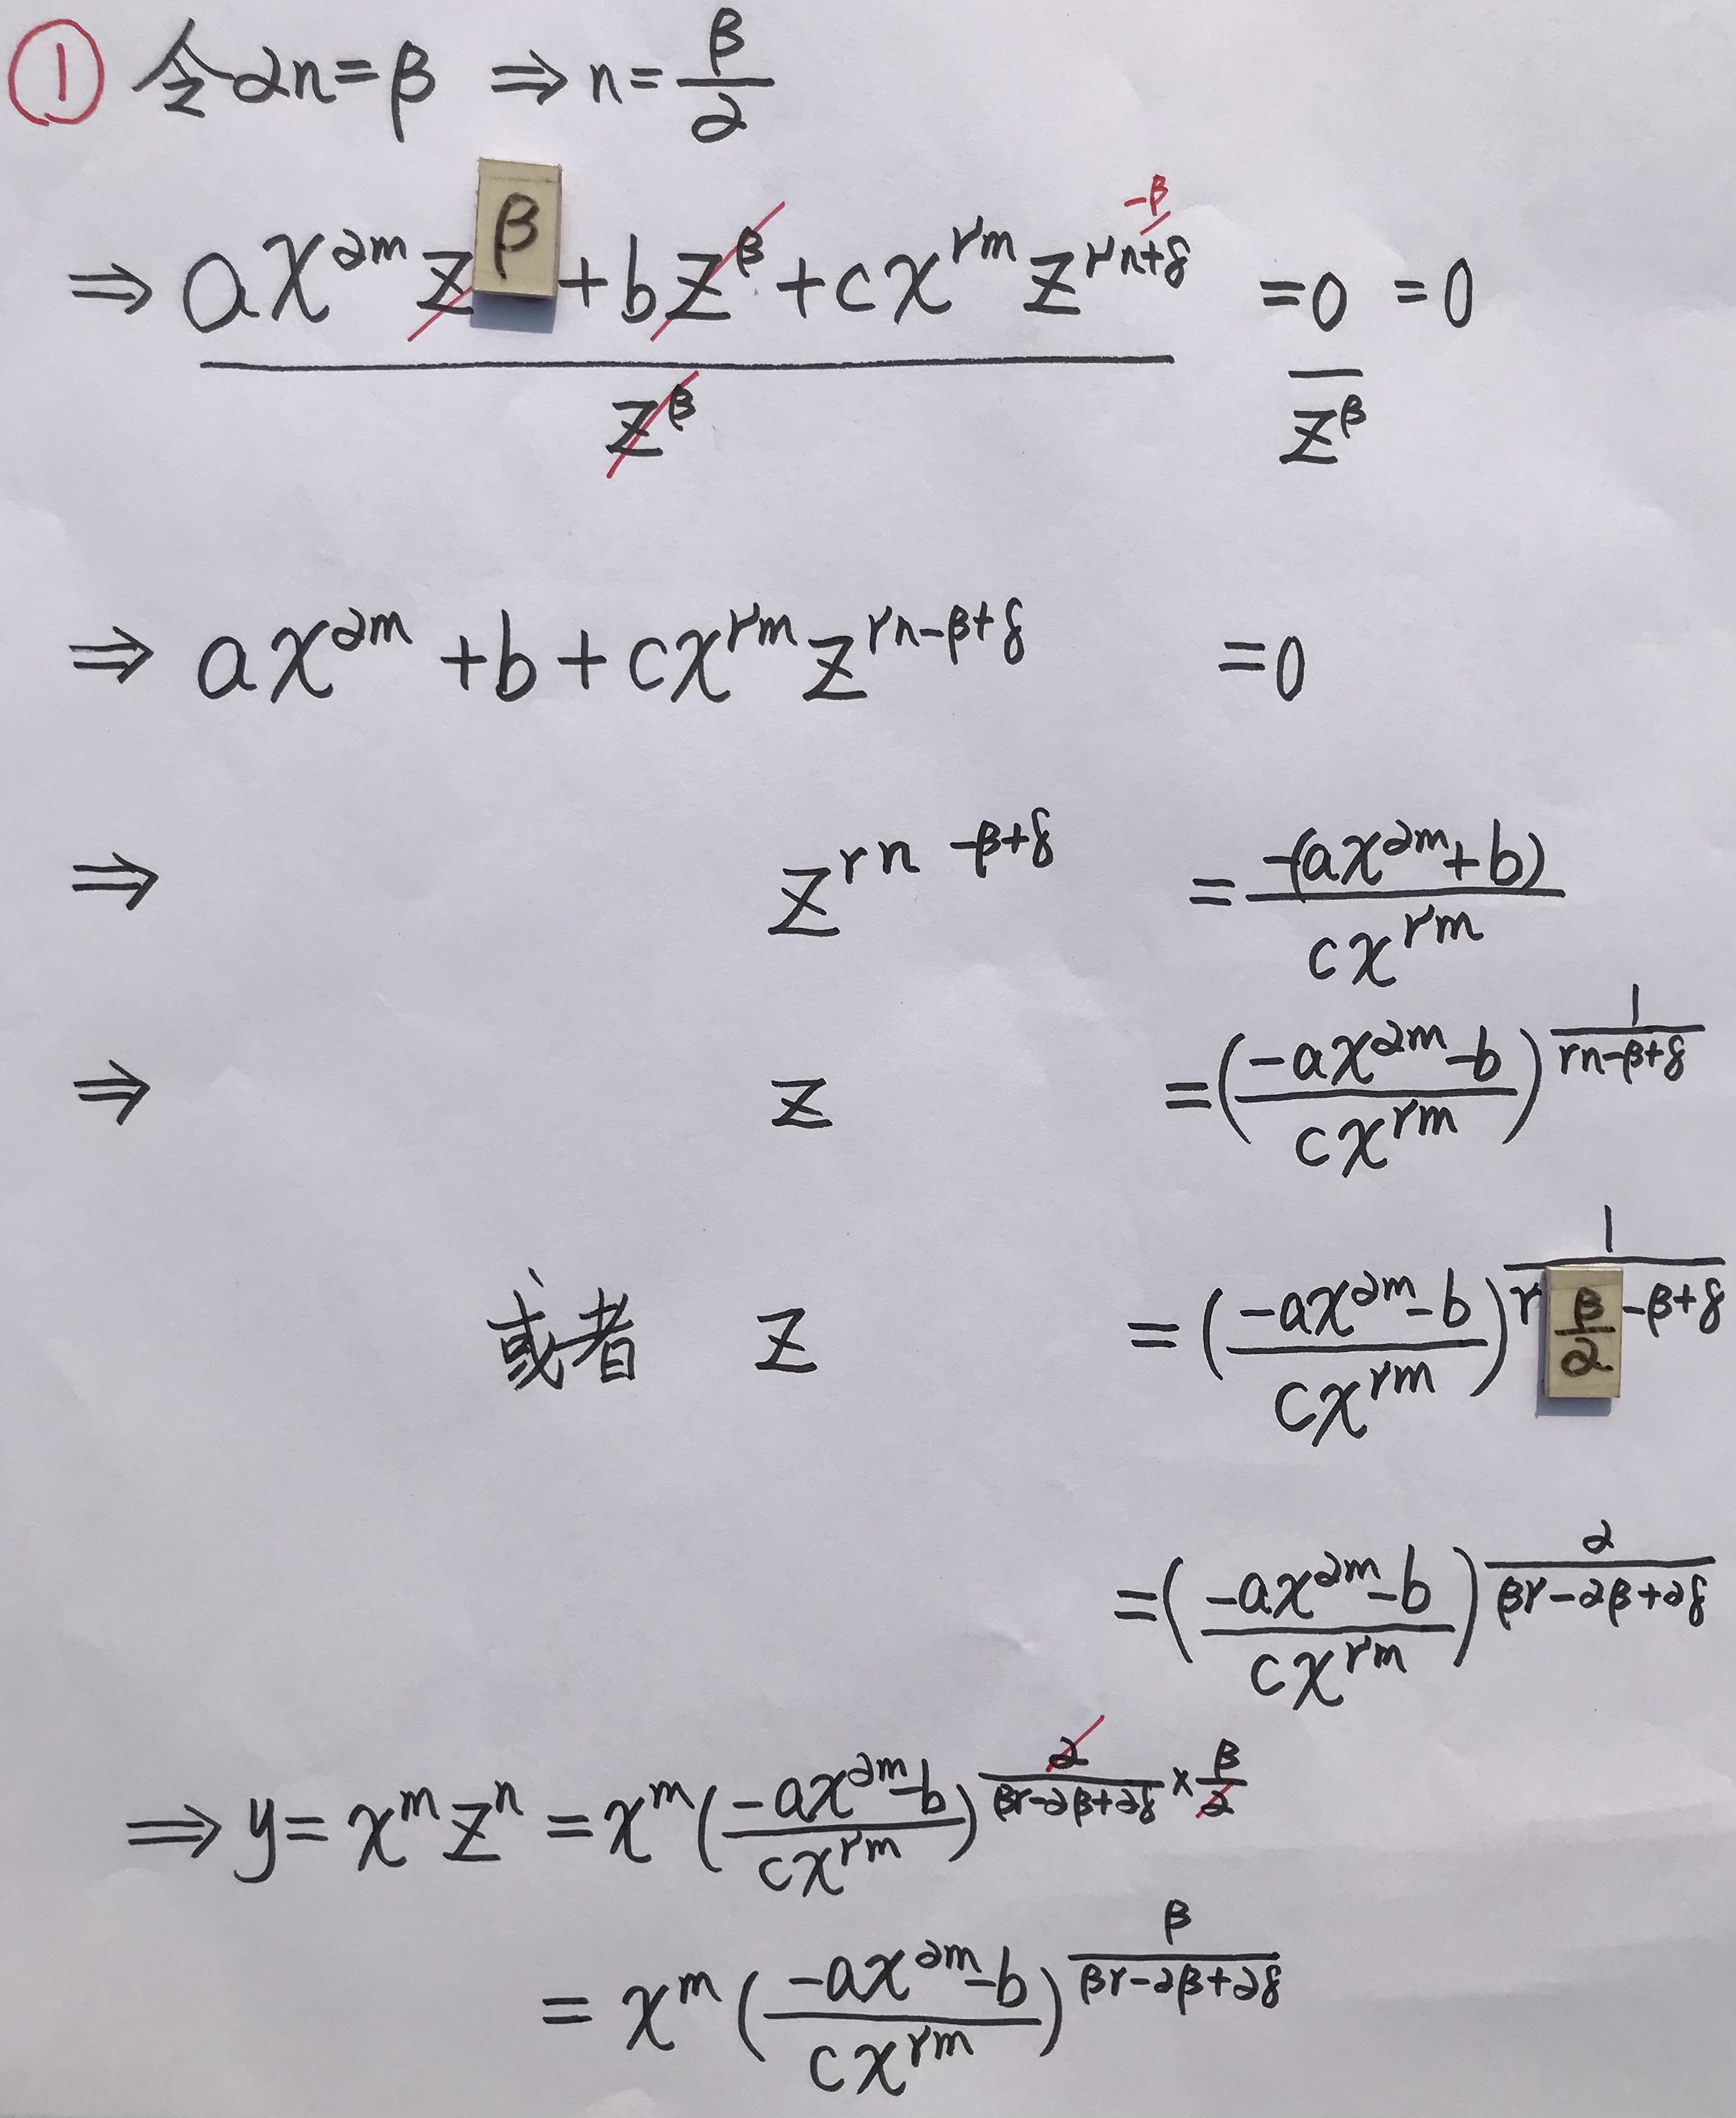 ① 令αn=β ⇒ n=β/α
⇒ (ax^{αm}z^{β}+bz^{β}+cx^{γm}z^{γn+δ -β})/z^{β} =0/z^{β} =0
⇒ ax^{αm}+b+cx^{γm}z^{γn-β+δ} =0
⇒ z^{γn-β+δ} = -(ax^{αm}+b)/(cx^{γm})
⇒ z =((-ax^{αm}-b)/(cx^{γm}))^{1/(γn-β+δ)}
或者 z =((-ax^{αm}-b)/(cx^{γm}))^{1/(γ(β/α)-β+δ)}
=((-ax^{αm}-b)/(cx^{γm}))^{α/(βγ-αβ+αδ)}
⇒ y=x^{m}z^{n} =x^{m}((-ax^{αm}-b)/(cx^{γm}))^{α/(βγ-αβ+αδ)×β/α}
= x^{m}((-ax^{αm}-b)/(cx^{γm}))^{β/(βγ-αβ+αδ)}